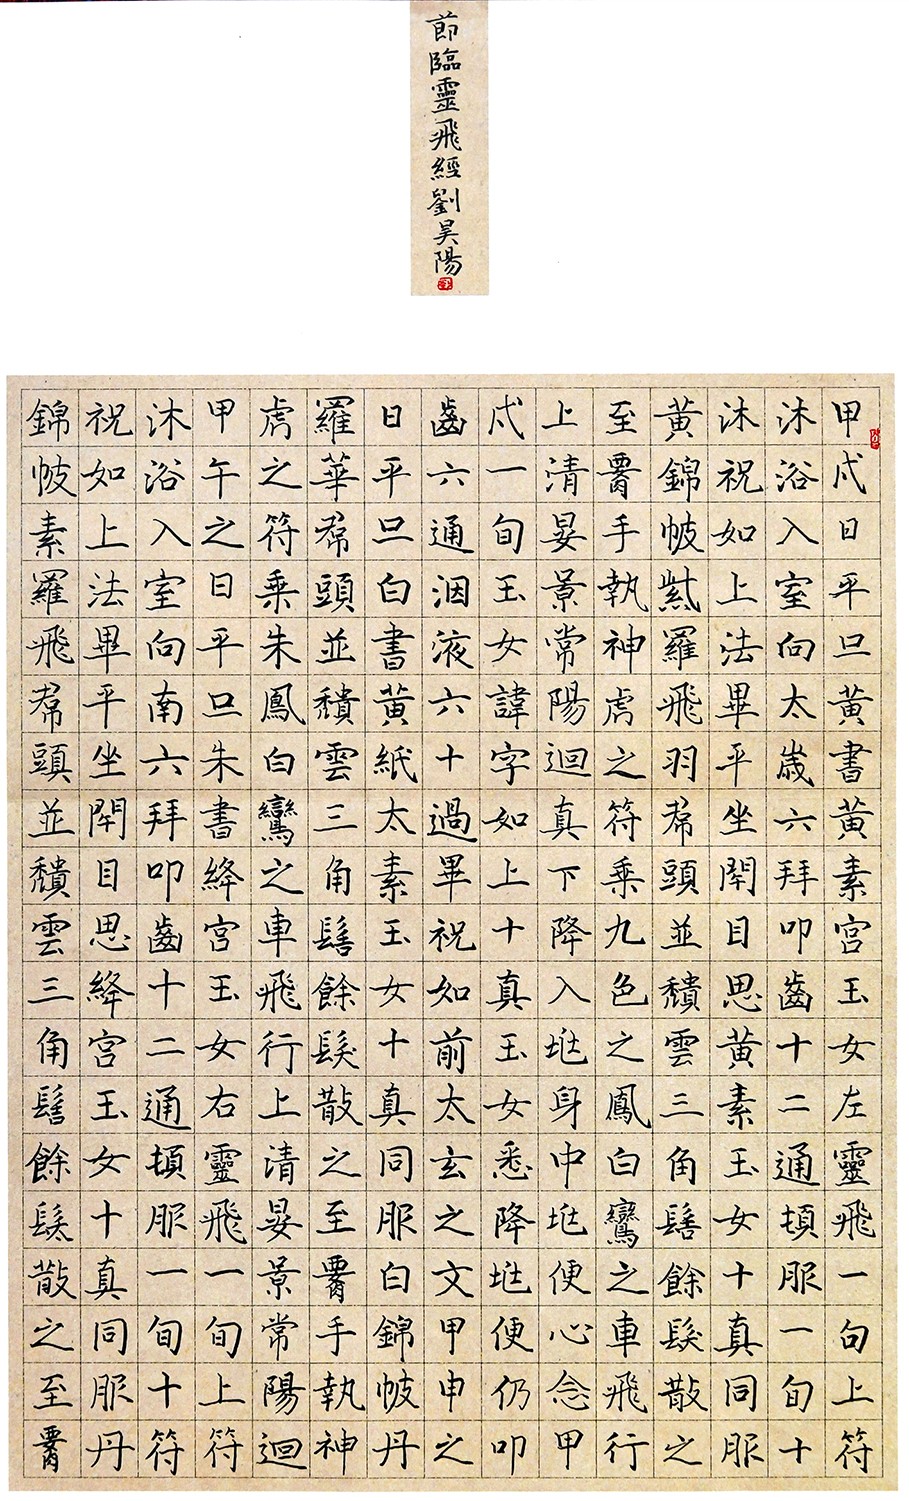 節臨靈飛經劉昊陽
甲戌日平旦黃書黃素宮玉女左靈飛一句上符
沐浴入室向太歲六拜叩齒十二通頓服一旬十
沐祝如上法畢平坐閇目思黃素玉女十真同服
黃錦帔紫羅飛羽帬頭並頹雲三角髻餘髮散之
至腰手執神虎之符乘九色之鳳白鸞之車飛行
上清晏景常陽迴真下降入𡉀身中𡉀便心念甲
戌一旬玉女諱字如上十真玉女悉降𡉀便仍叩
齒六通洇液六十過畢祝如前太玄之文甲申之
日平旦白書黃紙太素玉女十真同服白錦帔丹
羅華帬頭並頹雲三角髻餘髮散之至腰手執神
虎之符乘朱鳳白鸞之車飛行上清晏景常陽迴
甲午之日平旦朱書絳宮玉女右靈飛一旬上符
沐浴入室向南六拜叩齒十二通頓服一旬十符
祝如上法畢平坐閇目思絳宮玉女十真同服丹
錦帔素羅飛帬頭並頹雲三角髻餘髮散之至腰